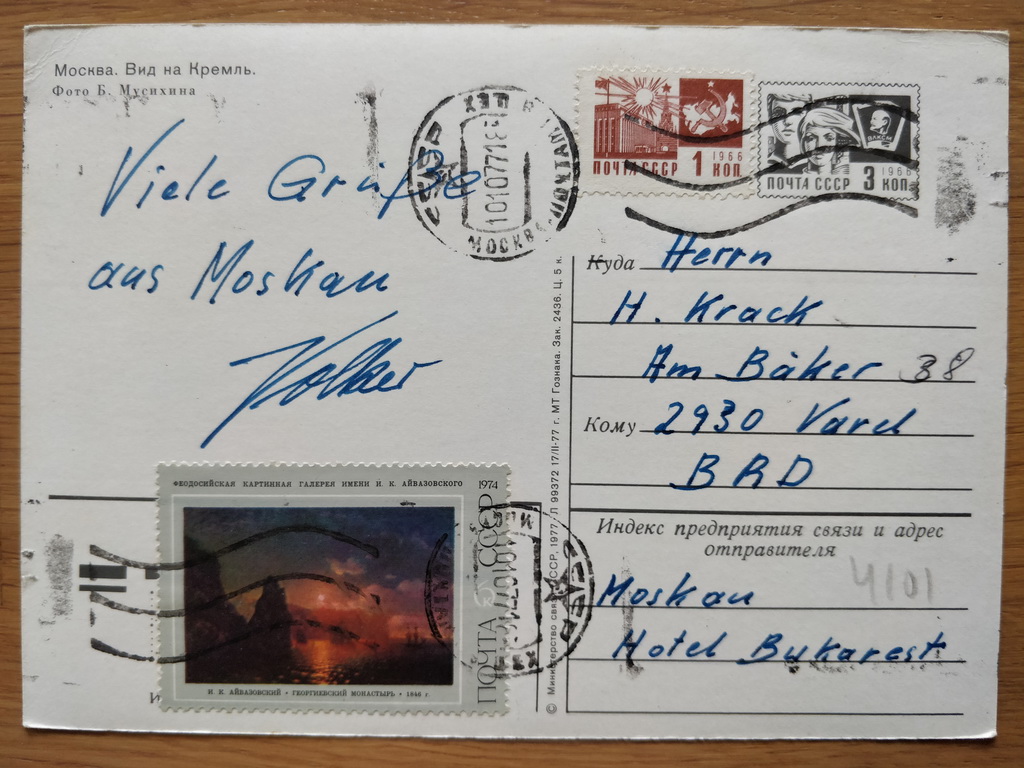 Москва. Вид на Кремль.
Фото Б. Мусихина
Viele Grüße
aus Moskau
Volker
СССР
МОСКВА
10107718
ПОЧТА СССР 1 КОП
1966
ВЛКСМ
ПОЧТА СССР 3 КОП
1966
Куда Herrn
H. Krack
Am Bäker 38
Кому 2930 Varel
BRD
Индекс предприятия связи и адрес
отправителя
4101
Moskau
Hotel Bukarest
© Министерство связи СССР, 1977. Л 99372 17/II-77 г. МТ Гознака. Зак. 2436. Ц. 5 к.
ФЕОДОСИЙСКАЯ КАРТИННАЯ ГАЛЕРЕЯ ИМЕНИ И. К. АЙВАЗОВСКОГО 1974
ПОЧТА СССР
И. К. АЙВАЗОВСКИЙ • ГЕОРГИЕВСКИЙ МОНАСТЫРЬ • 1846 г.
СССР